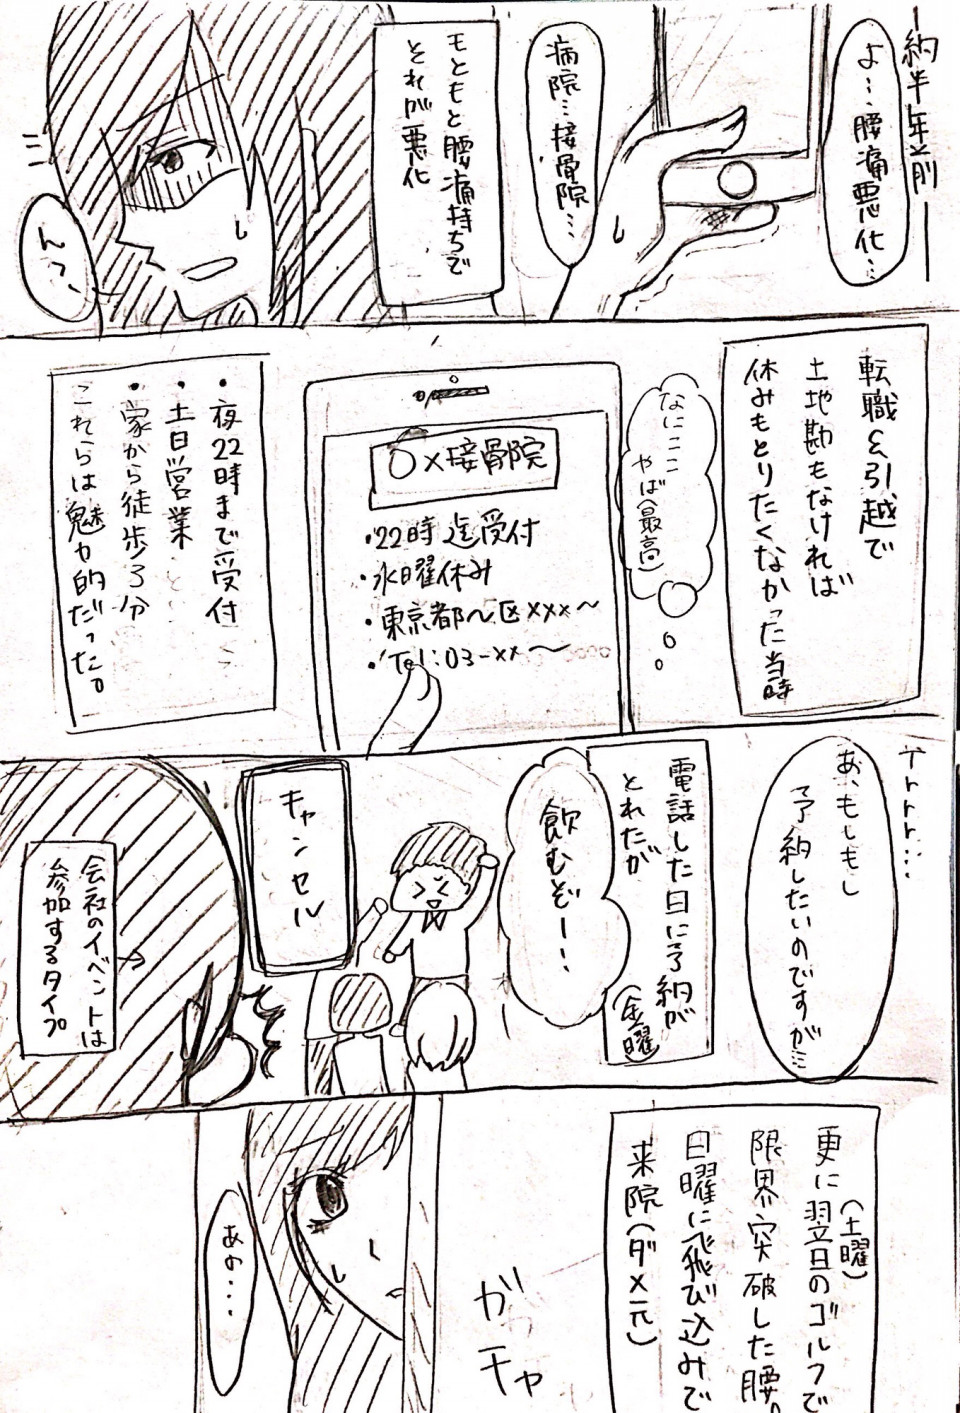 約半年前
よ…腰痛悪化…
病院…接骨院…
もともと腰痛持ちで
それが悪化
んっ…
転職&引越で
土地勘もなければ
休みもとりたくなかった当時
なにここ
やば(最高)
○×接骨院
・22時迄受付
・水曜休み
・東京都〜区xxx〜
・Tel:03-xx〜
・夜22時まで受付
・土日営業
・家から徒歩3分
これらは魅力的だった。
トゥルルル…
あ、もしもし
予約したいのですが…
電話した日に予約が
とれたが
(金曜)
飲むぞー!
キャンセル
会社のイベントは
参加するタイプ
(土曜)
更に翌日のゴルフで
限界突破した腰。
日曜に飛び込みで
来院(ダメ元)
ガチャ
あの…